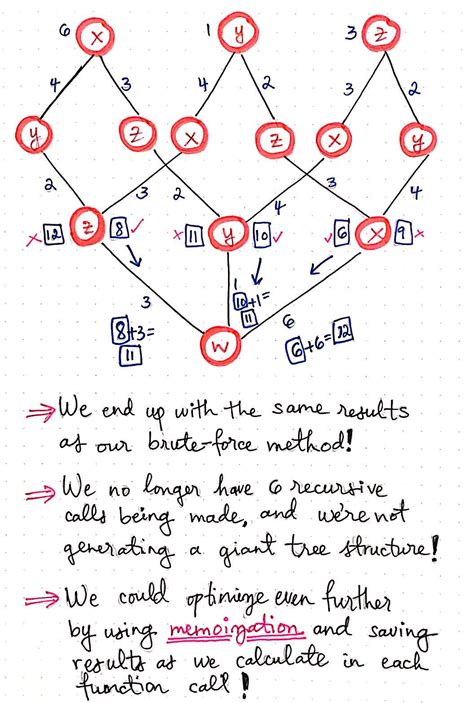 6 x 1 y 3 z
4 3 4 2 3 2
y z x z x y
2 3 2 4 3 4
x 12 z 8 ✓ x 11 y 10 ✓ ✓ 6 x 9 x
3 1 6
8+3= 10+1= 6+6=12
11 11
w
⇒ We end up with the same results
as our brute-force method!
⇒ We no longer have 6 recursive
calls being made, and we're not
generating a giant tree structure!
⇒ We could optimize even further
by using memoization and saving
results as we calculate in each
function call!